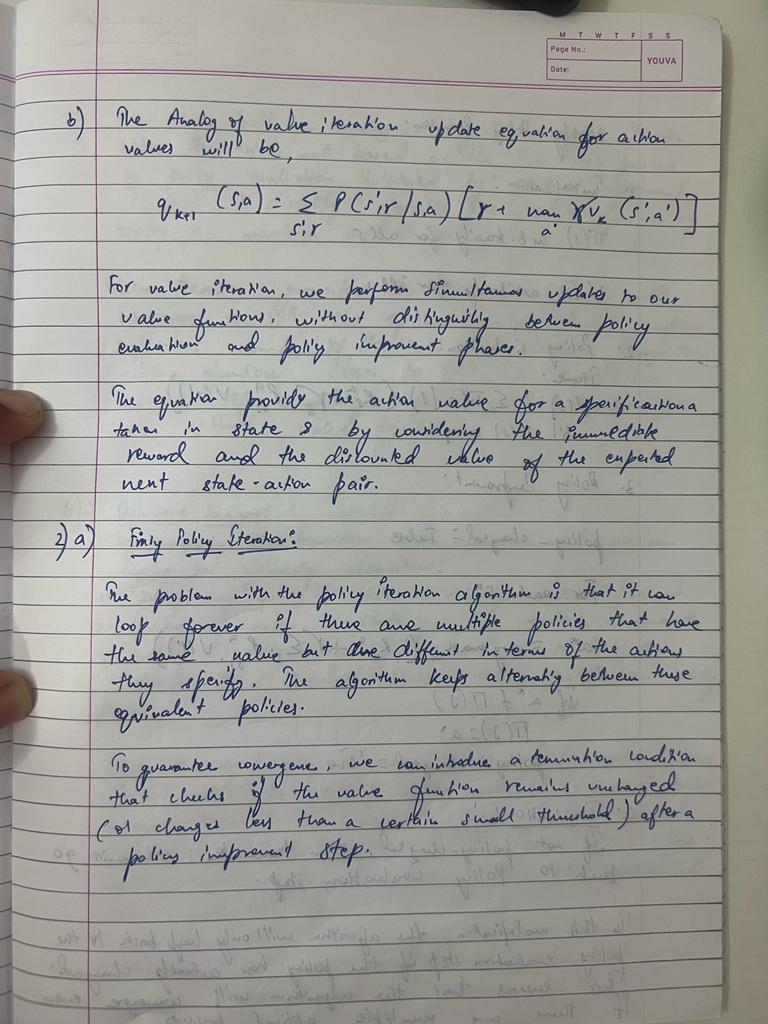 M T W T F S S
Page No.:
YOUVA
Date:
b) The Analog of value iteration update equation for action
values will be,
q_{k+1} (s,a) = Σ_{s',r} P(s',r/s,a) [r + max_{a'} γ v_k (s',a')]
For value iteration, we perform simultanous updates to our
value functions, without distinguishig between policy
evaluation and policy improvent phases.
The equation provide the action value for a specific action a
taken in state s by considering the immediate
reward and the discounted value of the expected
next state-action pair.
2) a) Fixiy Policy Iteration:
The problem with the policy iteration algorithm is that it can
loop forever if there are multiple policies that have
the same value but are different in terms of the actions
they specify. The algorithm keeps alternatig between these
equivalent policies.
To guarantee convergene, we can introduce a termination condition
that checks if the value function remains unchanged
(or changes less than a certain small threshold) after a
policy improvent step.